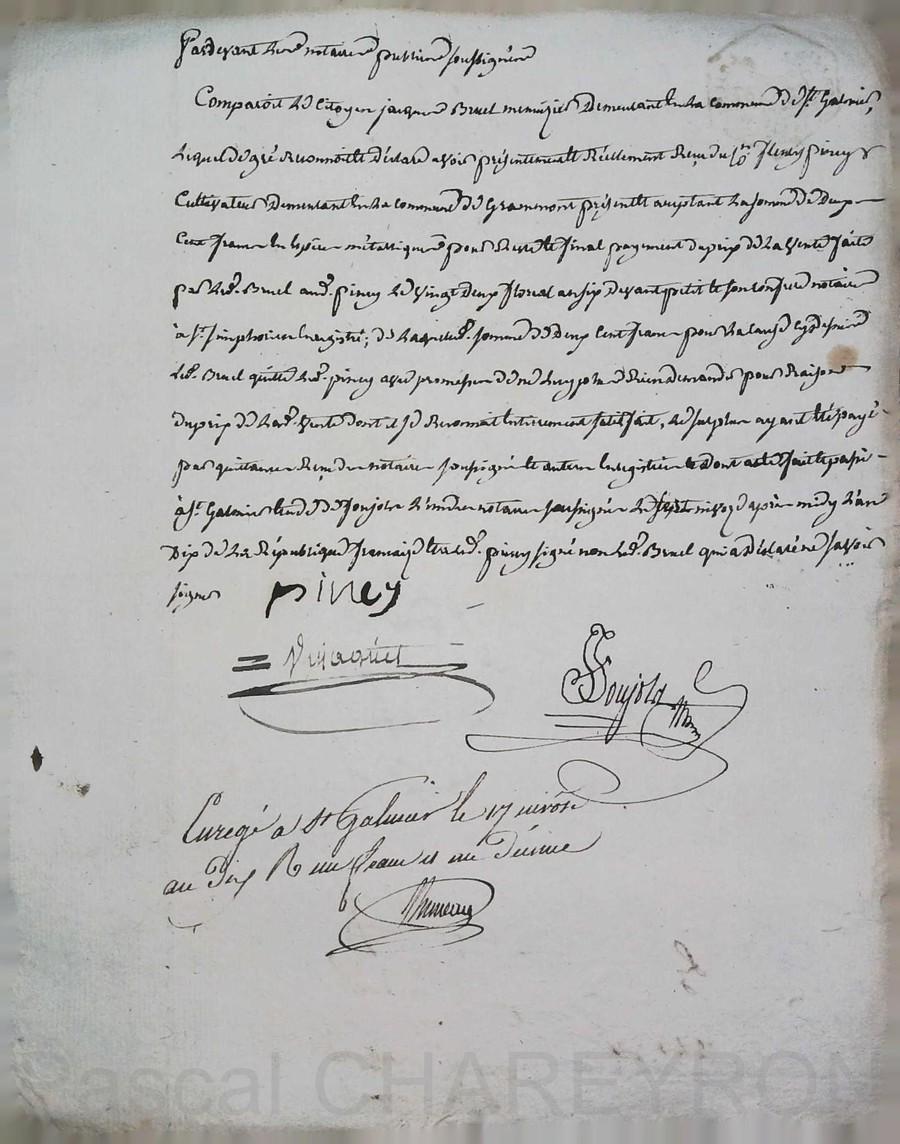 Pardevant le no notaire public soussigné
Comparoit le Citoyen jacques Bruel menuzier Demeurant en la commune de St Galmier,
Lequel de gré Reconnoit et Déclare avoir présentement et Réellement Reçu du Cn fleury piney
Cultivateur Demeurant en la commune de Grammont présent et aceptant la somme de Deux
Cent francs en Espèces métalliques pour Reste et final payement du prix de la vente faite
par led. Bruel aud. piney le vingt Deux floreal an six devant petit et son confrere notaire
à St. simphorien Enregistré; de laquelle somme de Deux Cent francs pour la cause cy dessus
led. Bruel quitte led. piney avec promesse de ne luy plus Rien demander pour Raison
du prix de lad. vente dont il se Reconnoit Entierement satisfait, le surplus ayant été payé
par quittance Reçue du notaire soussigné Enregistrée Dont acte fait et passé
à St. Galmier Etude de Soujola l'un des notaires soussignés le sept nivoze après midy l'an
Dix de la République francaise Et a led. piney signé non led. Bruel qui a Déclaré ne savoir
signer piney
Soujola
Enregé a St Galmier le 17 nivôse
an Dix R un franc et un Décime
Pascal CHAREYRON